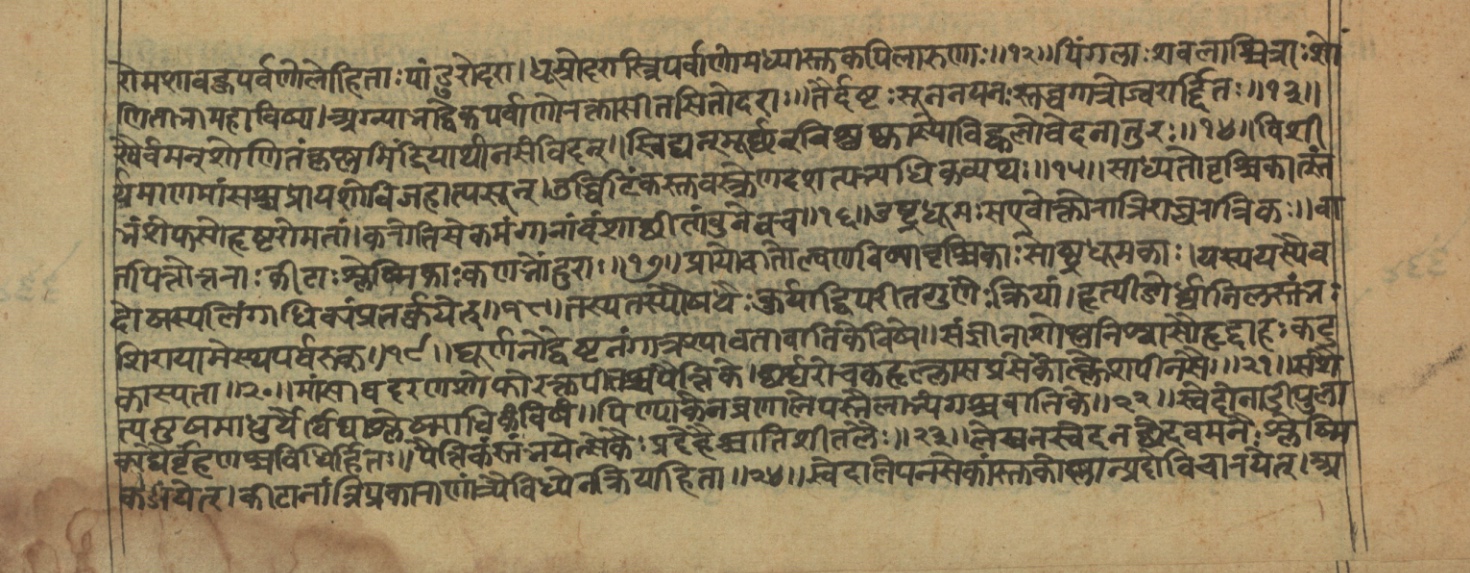 रोमशावहुपर्वाणोलोहिताः पांडुरोदरा। धूम्रोदरास्त्रिपर्वाणोमध्यास्तकपिलारुणः॥१२॥ पिंगलाः शवलाश्चित्राः शो
णिताभामहाविष्य। अग्न्याभाद्व्येकपर्वाणोरक्तासीतसितोदरा॥ तैर्दष्टः सूननयनः स्तब्धगात्रोज्वरार्द्दितः॥१३॥
खैर्वमन्शोणितंकृष्णमिंद्रियार्थानसंविदन्॥ स्विद्यन्मूर्छन्विशुष्कास्योविह्वलोवेदनातुरः॥१४॥ विशी
र्यमाणमांसश्चप्रायशोविजहात्यसून्। उच्चिटिंकस्तवक्त्रेणदशत्यत्यधिकव्यथः॥१५॥ साध्यतोवृश्चिकात्स्तं
भंशेफसोहृष्टरोमतां। करोतिसेकमंगानांदंशःशीतांवुनेवच॥१६॥ उष्ट्रधूमः सएवोक्तोरात्रिराच्चरात्रिकः॥ वा
तपित्तोत्तराः कीटाः श्लेष्मिकाः कणभोंदुराः॥१७॥ प्रायोवातोल्वणविषावृश्चिकाः सोष्ट्रधूमकाः। यस्ययस्यैव
दोषस्यलिंगाधिक्यंप्रतर्क्कयेत्॥१८॥ तस्यतस्यौषधैः कुर्याद्विपरीतगुणैः क्रियां। हृत्पीडोर्ध्वानिलस्तंभः
शिरायामेस्थपर्वरुक्॥१९॥ घूर्णनोद्वेष्टनंगात्रश्यावतावातिकेविषे॥ संज्ञानाशोष्णनिश्वासौहृद्दाहः कटु
कास्यता॥२०॥ मांसावदरणशोफोरक्तपीतश्चपैत्तिके। छर्द्यरोचकहृल्लासप्रसेकोत्क्लेशपीनसैः॥२१॥ सशै
त्यमुखमाधुर्यैर्विद्याच्छ्लेष्माधिकंविषं॥ पिण्याकेनव्रणालेपस्तैलाभ्यंगश्चवातिके॥२२॥ स्वेदोनाडीपुला
काद्यैर्वृंहणश्चविधिर्हितः॥ पैत्तिकंस्तंभयेत्सेकैः प्रदेहैश्चातिशीतलैः॥२३॥ लेखनस्वेदनछेदवमनैः श्लेष्मि
कंजयेत्। कीटानांत्रिप्रकाराणांत्रैविध्येनक्रियाहिता॥२४॥ स्वेदालेपनसेकांस्तकोष्णान्प्रदोविचारयेत्। अ